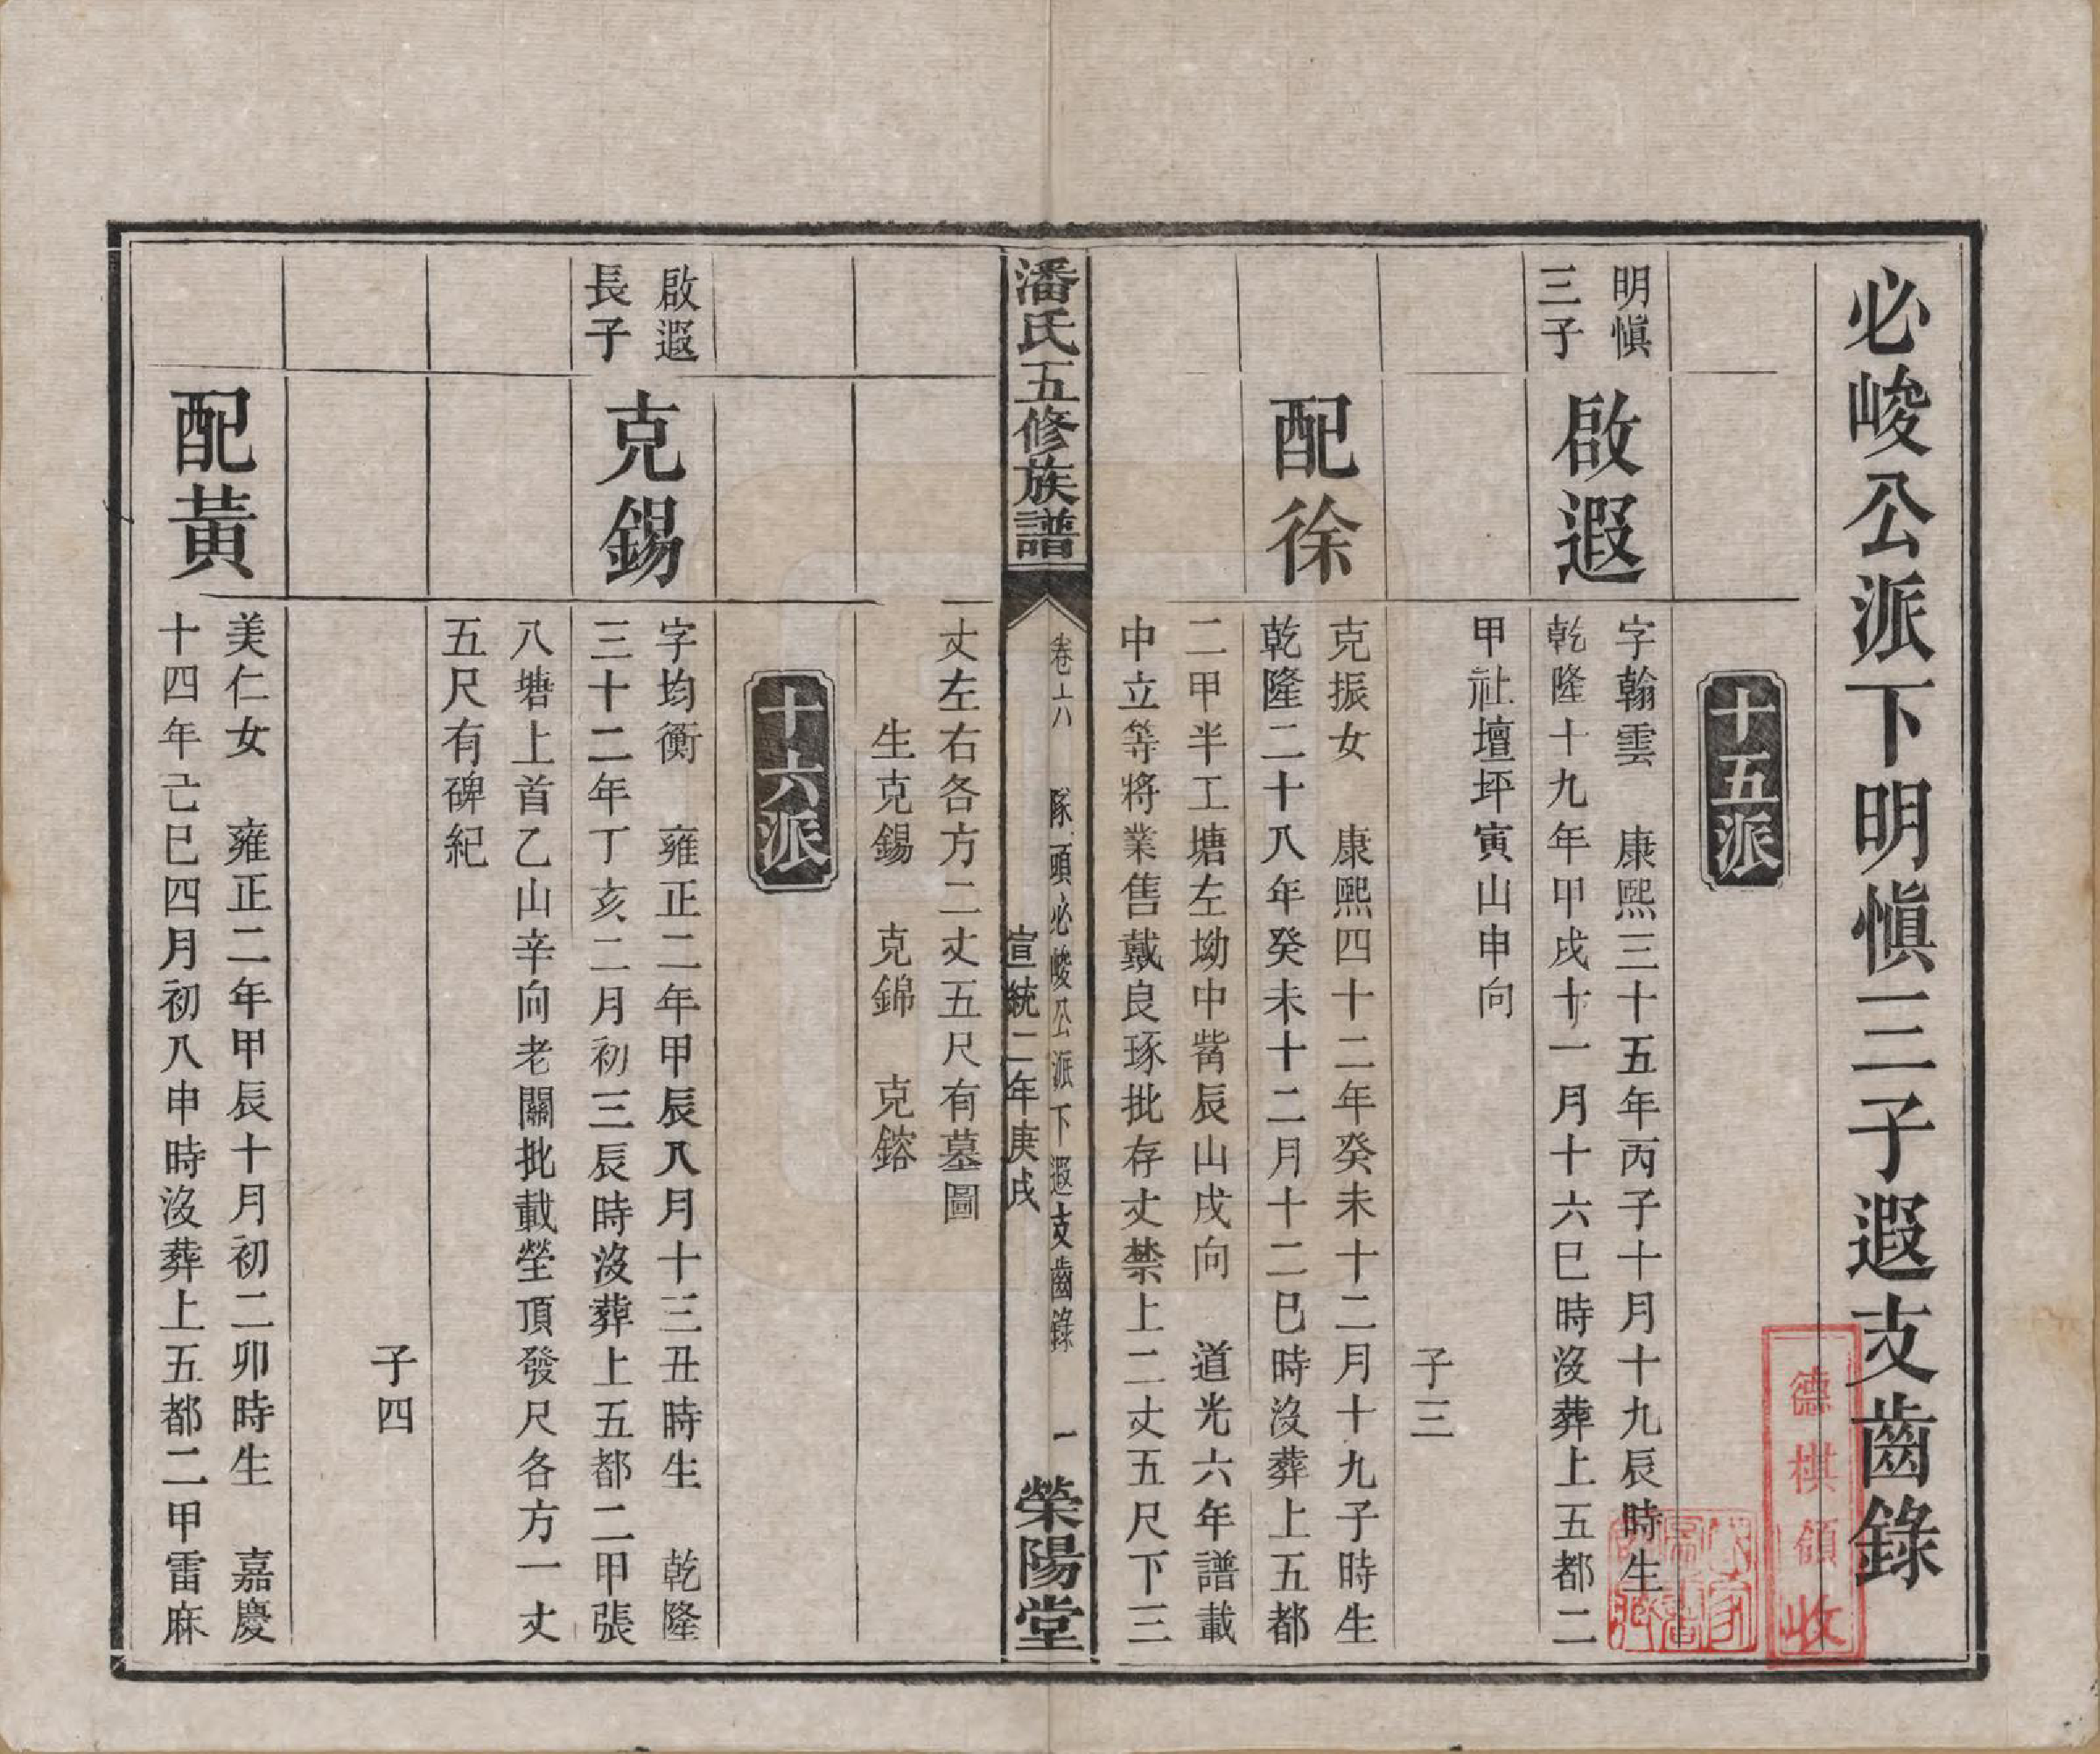 必峻公派下明愼三子遐支齒錄
十五派
明愼
三子
啟遐
字翰雲　康熙三十五年丙子十月十九辰時生
乾隆十九年甲戌十一月十六巳時沒葬上五都二
甲社壇坪寅山申向
子三
配徐
克振女　康熙四十二年癸未十二月十九子時生
乾隆二十八年癸未十二月十二巳時沒葬上五都
二甲半工塘左坳中嘴辰山戌向　道光六年譜載
中立等將業售戴良琢批存丈禁上二丈五尺下三
潘氏五修族譜
卷六　隊頭必峻公派下遐支齒錄　一
宣統二年庚戌
榮陽堂
丈左右各方二丈五尺有墓圖
生克錫　克錦　克鎔
十六派
啟遐
長子
克錫
字均衡　雍正二年甲辰八月十三丑時生　乾隆
三十二年丁亥二月初三辰時沒葬上五都二甲張
八塘上首乙山辛向老關批載塋頂發尺各方一丈
五尺有碑紀
子四
配黃
美仁女　雍正二年甲辰十月初二卯時生　嘉慶
十四年己巳四月初八申時沒葬上五都二甲雷麻
德棋領收